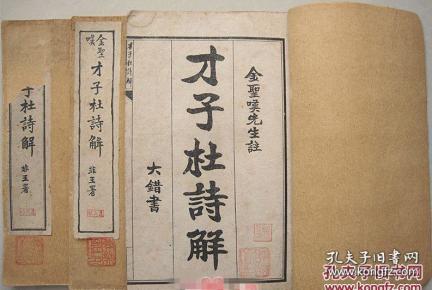 金聖嘆先生註
才子杜詩解
大錯書
才子杜詩解
金聖嘆
才子杜詩解
子杜詩解
孔夫子旧书网
www.kongfz.com